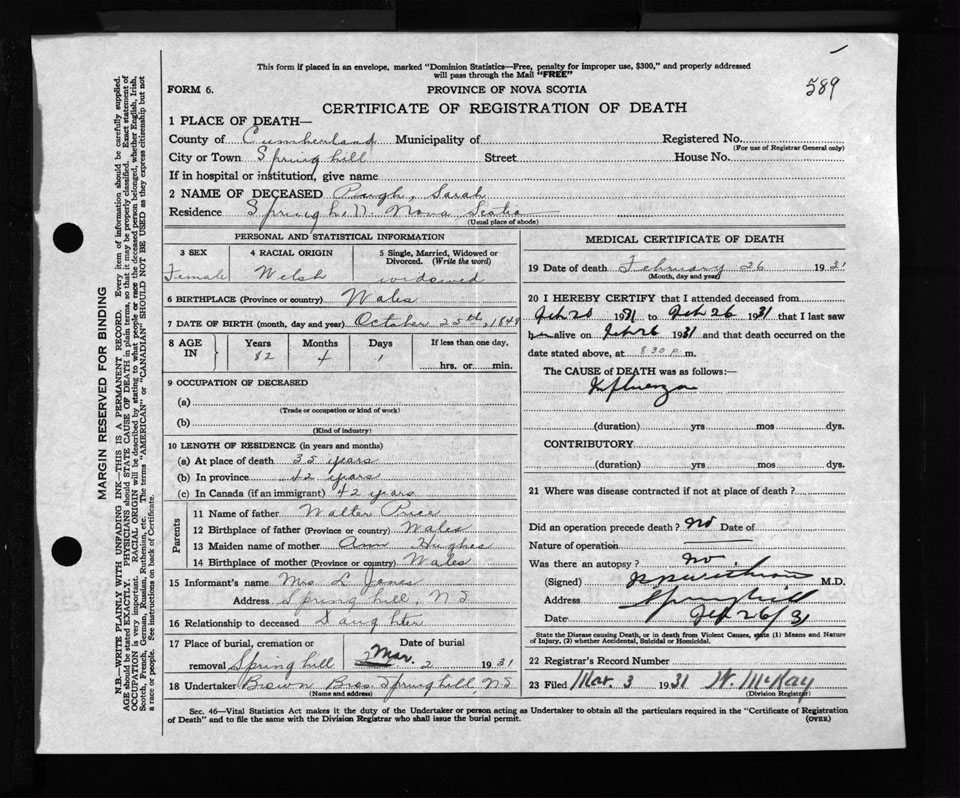 This form if placed in an envelope, marked "Dominion Statistics—Free, penalty for improper use, $300," and properly addressed
will pass through the Mail "FREE"
589
FORM 6.
PROVINCE OF NOVA SCOTIA
CERTIFICATE OF REGISTRATION OF DEATH
1 PLACE OF DEATH—
County of Cumberland Municipality of Registered No.
(For use of Registrar General only)
City or Town Springhill Street House No.
If in hospital or institution, give name
2 NAME OF DECEASED Pugh, Sarah
Residence Springhill Nova Scotia
(Usual place of abode)
PERSONAL AND STATISTICAL INFORMATION
3 SEX 4 RACIAL ORIGIN 5 Single, Married, Widowed or
Divorced. (Write the word)
Female Welsh widowed
6 BIRTHPLACE (Province or country) Wales
7 DATE OF BIRTH (month, day and year) October 25th, 1848
8 AGE IN Years Months Days If less than one day,
82 4 1 hrs. or min.
9 OCCUPATION OF DECEASED
(a)
(Trade or occupation or kind of work)
(b)
(Kind of industry)
10 LENGTH OF RESIDENCE (in years and months)
(a) At place of death 35 years
(b) In province 42 years
(c) In Canada (if an immigrant) 42 years
Parents
11 Name of father Walter Price
12 Birthplace of father (Province or country) Wales
13 Maiden name of mother Ann Hughes
14 Birthplace of mother (Province or country) Wales
15 Informant's name Mrs. L. Jones
Address Springhill, N S
16 Relationship to deceased Daughter
17 Place of burial, cremation or Date of burial
removal Springhill Mar. 2 1931
18 Undertaker Brown Bros. Springhill N S
(Name and address)
MEDICAL CERTIFICATE OF DEATH
19 Date of death February 26 1931
(Month, day and year)
20 I HEREBY CERTIFY that I attended deceased from
Feb 20 1931 to Feb 26 1931 that I last saw
her alive on Feb 26 1931 and that death occurred on the
date stated above, at 8 30 p. m.
The CAUSE of DEATH was as follows:—
Influenza
(duration) yrs mos dys.
CONTRIBUTORY
(duration) yrs mos dys.
21 Where was disease contracted if not at place of death?
Did an operation precede death? no Date of
Nature of operation
Was there an autopsy? no.
(Signed) M.D.
Address Springhill
Date Feb 26/31
State the Disease causing Death, or in death from Violent Causes, state (1) Means and Nature
of Injury, (2) whether Accidental, Suicidal or Homicidal.
22 Registrar's Record Number
23 Filed Mar. 3 1931 W. McKay
(Division Registrar)
Sec. 46—Vital Statistics Act makes it the duty of the Undertaker or person acting as Undertaker to obtain all the particulars required in the "Certificate of Registration
of Death" and to file the same with the Division Registrar who shall issue the burial permit.
(OVER)
MARGIN RESERVED FOR BINDING
N.B.—WRITE PLAINLY WITH UNFADING INK—THIS IS A PERMANENT RECORD. Every item of information should be carefully supplied.
AGE should be stated EXACTLY. PHYSICIANS should STATE CAUSE OF DEATH in plain terms, so that it may be properly classified. Exact statement of
OCCUPATION is very important. RACIAL ORIGIN will be described by stating to what people or race the deceased person belonged, whether English, Irish,
Scotch, French, German, Russian, Ruthenian, etc. The terms "AMERICAN" or "CANADIAN" SHOULD NOT BE USED as they express citizenship but not
a race or people. See instructions on back of Certificate.